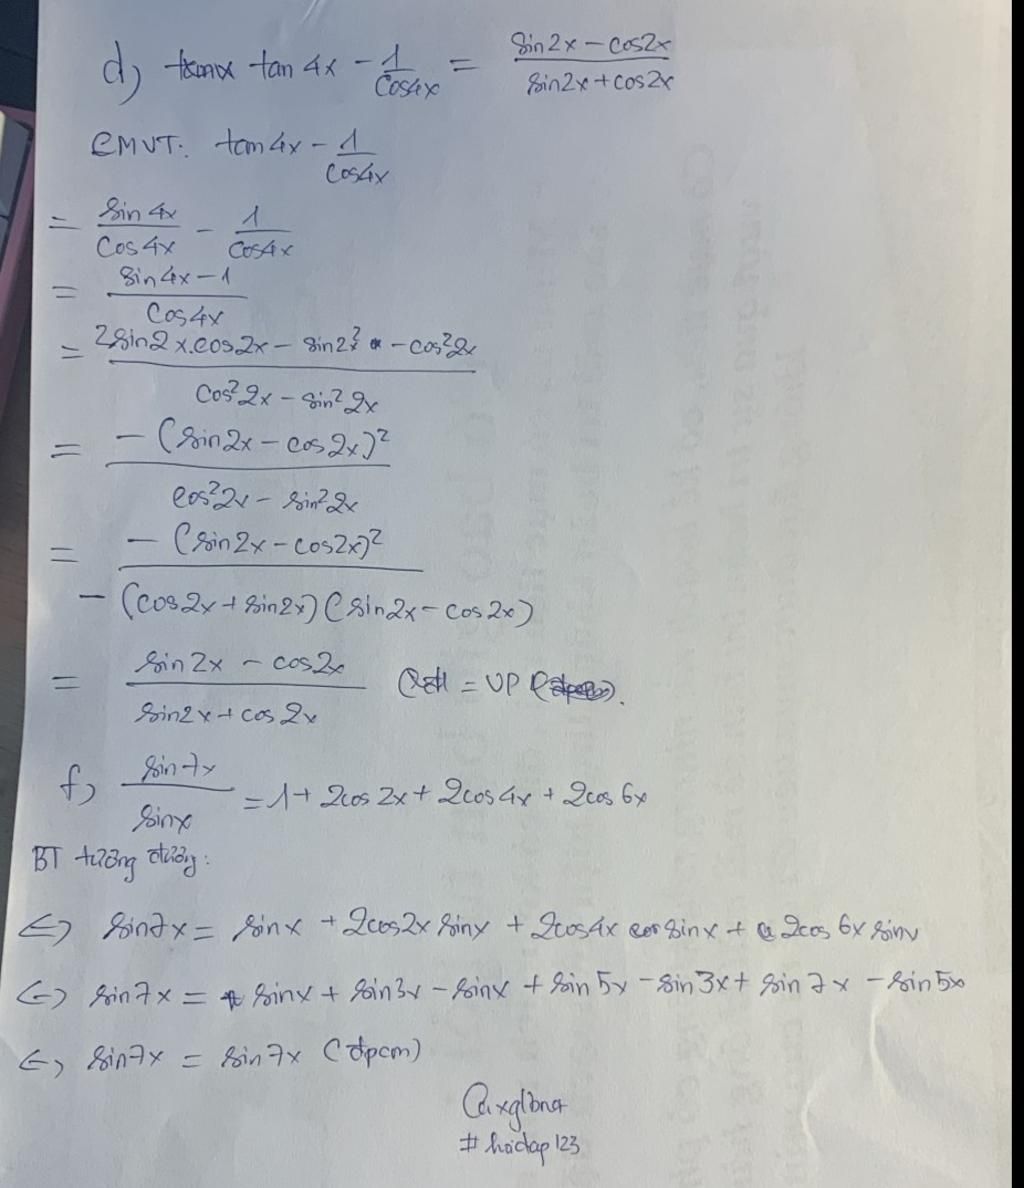 d) tan 4x - 1/cos4x = (sin2x - cos2x)/(sin2x + cos2x)
CMVT: tan 4x - 1/cos4x
= sin 4x/cos 4x - 1/cos4x
= (sin 4x - 1)/cos 4x
= (2sin2x.cos2x - sin2x² - cos²2x)/(cos²2x - sin²2x)
= -(sin2x - cos2x)²/(cos²2x - sin²2x)
= -(sin2x - cos2x)²/-(cos2x + sin2x)(sin2x - cos2x)
= (sin2x - cos2x)/(sin2x + cos2x) = VP
f) sin7x/sinx = 1 + 2cos2x + 2cos4x + 2cos6x
BT tương đương:
<=> sin7x = sinx + 2cos2x sinx + 2cos4x sinx + 2cos6x sinx
<=> sin7x = sinx + sin3x - sinx + sin5x - sin3x + sin7x - sin5x
<=> sin7x = sin7x (đpcm)
#hoidap123